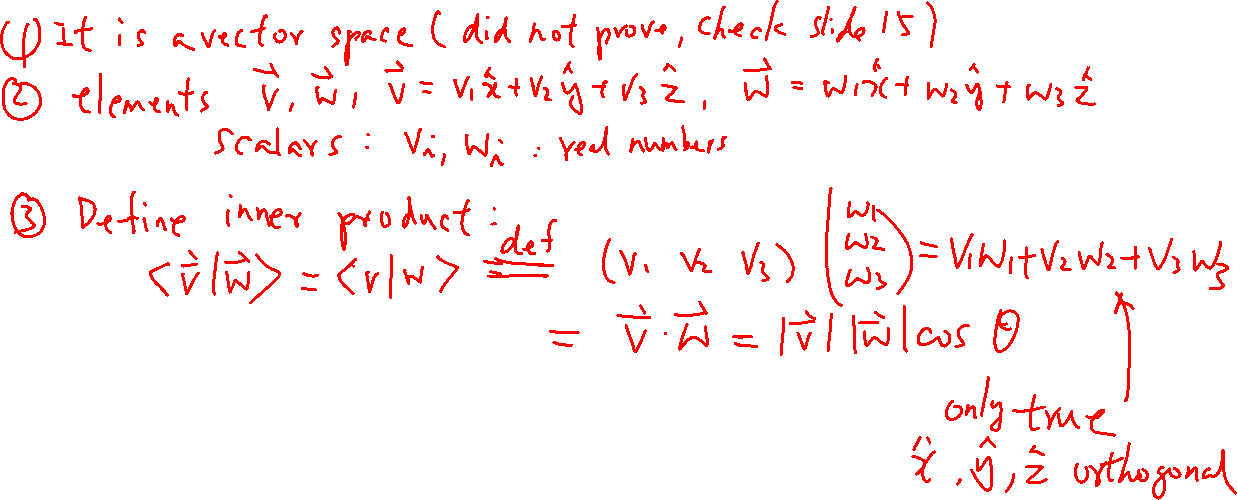 (1) It is a vector space ( did not prove, check slide 15 )
② elements v⃗, w⃗, v⃗ = v₁x̂ + v₂ŷ + v₃ẑ, w⃗ = w₁x̂ + w₂ŷ + w₃ẑ
scalars : vᵢ, wᵢ : real numbers
③ Define inner product :
<v⃗|w⃗> = <v|w> def= (v₁ v₂ v₃) (w₁ w₂ w₃) = v₁w₁ + v₂w₂ + v₃w₃
= v⃗ · w⃗ = |v⃗| |w⃗| cos θ
only true
x̂, ŷ, ẑ orthogonal